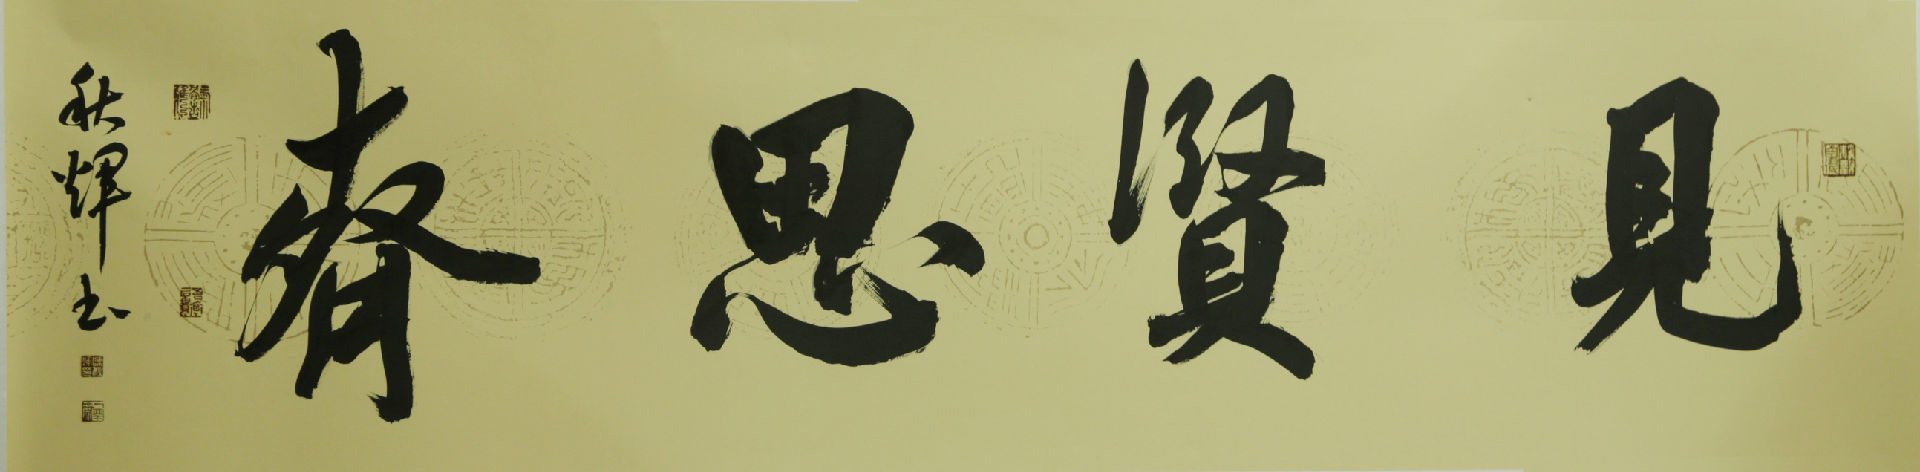 見賢思齊
秋輝书